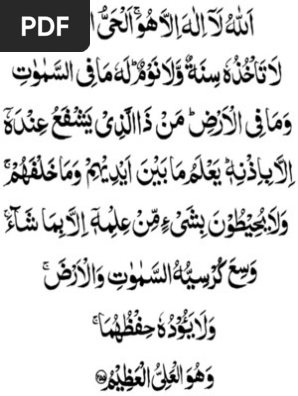 PDF
اَللّٰهُ لَاۤ اِلٰهَ اِلَّا هُوَۚ اَلْحَیُّ
لَا تَاْخُذُهٗ سِنَةٌ وَّلَا نَوْمٌؕ لَهٗ مَا فِی السَّمٰوٰتِ
وَمَا فِی الْاَرْضِؕ مَنْ ذَا الَّذِیْ یَشْفَعُ عِنْدَهٗۤ
اِلَّا بِاِذْنِهٖؕ یَعْلَمُ مَا بَیْنَ اَیْدِیْهِمْ وَمَا خَلْفَهُمْۚ
وَلَا یُحِیْطُوْنَ بِشَیْءٍ مِّنْ عِلْمِهٖۤ اِلَّا بِمَا شَآءَۚ
وَسِعَ كُرْسِیُّهُ السَّمٰوٰتِ وَالْاَرْضَۚ
وَلَا یَـُٔوْدُهٗ حِفْظُهُمَاۚ
وَهُوَ الْعَلِیُّ الْعَظِیْمُ